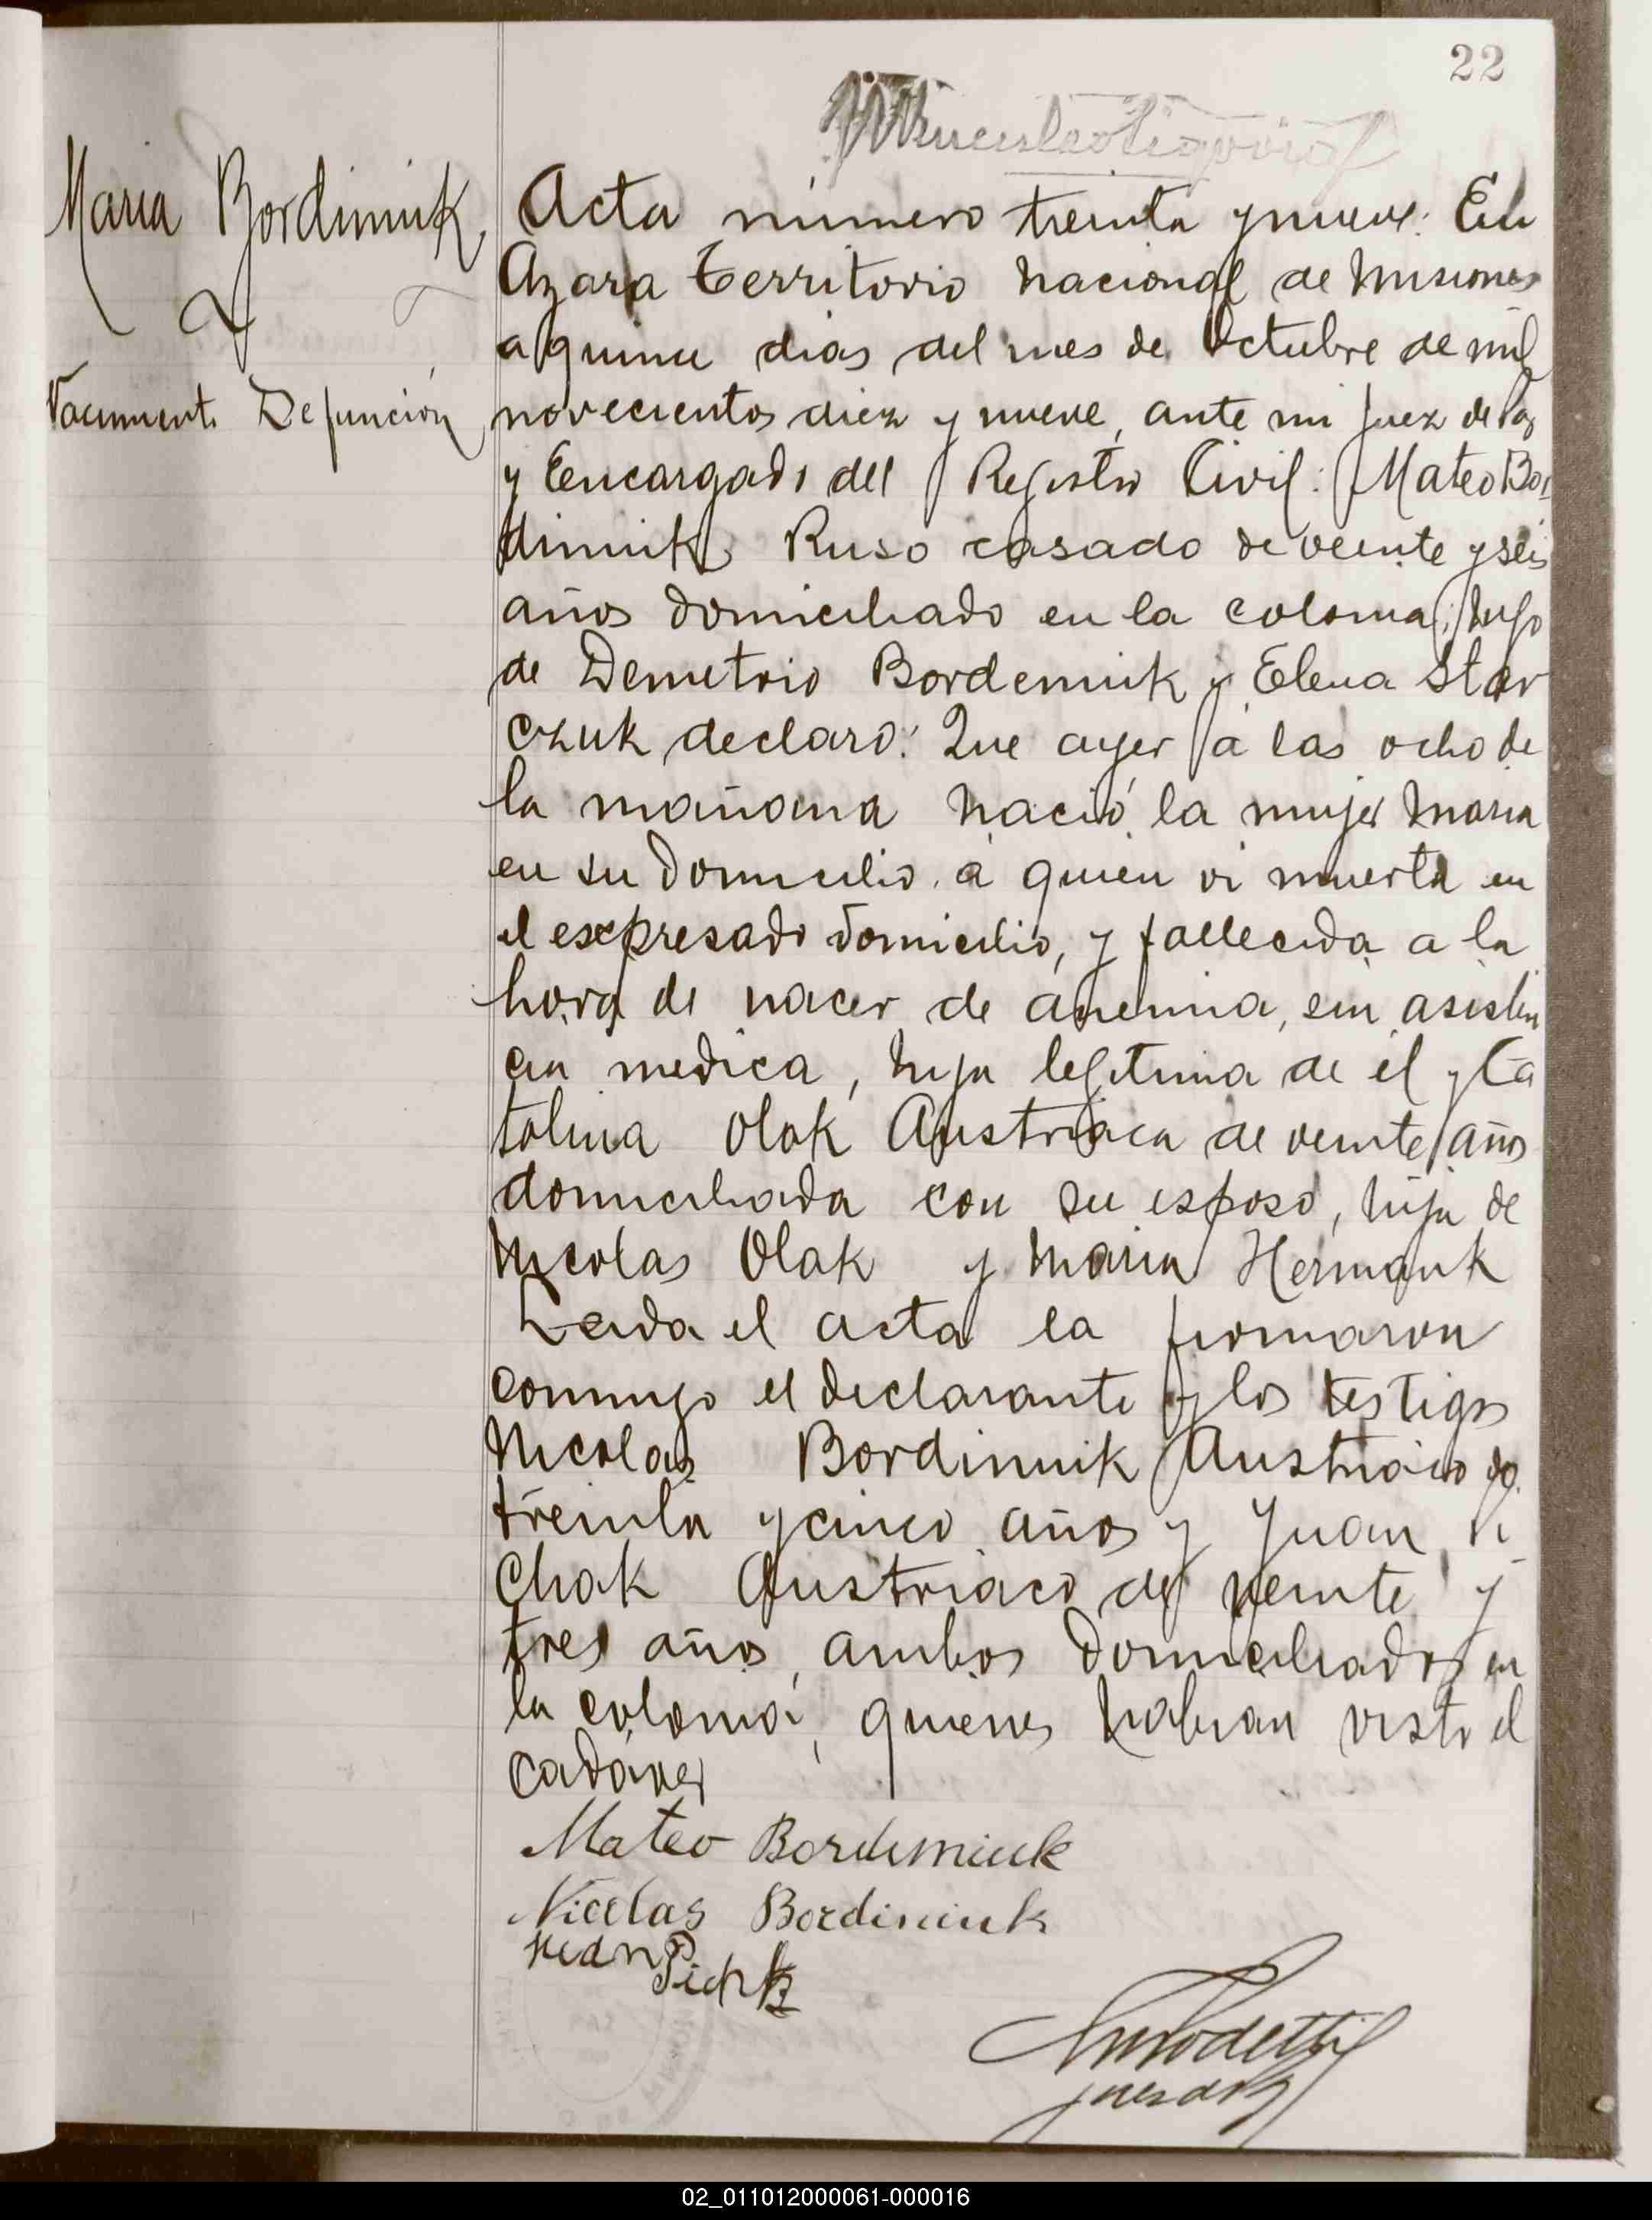 22
Maria Bordimiuk
Nacimiento Defunción
Acta número treinta y nueve: En
Azara Territorio Nacional de Misiones
a quince dias del mes de Octubre de mil
novecientos diez y nueve, ante mi Juez de Paz
y Encargado del Registro Civil: Mateo Bor
dimiuk Ruso casado de veinte y seis
años domiciliado en la colonia; hijo
de Demetrio Bordemiuk y Elena Star
czuk declaró: Que ayer á las ocho de
la mañana nació la mujer Maria
en su domicilio á quien vi muerta en
el expresado domicilio, y fallecida a la
hora de nacer de anemia, sin asisten
cia medica, hija legitima de él y Ca
talina Olak Austriaca de veinte años
domiciliada con su esposo, hija de
Nicolas Olak y Maria Hermanuk
Leida el acta la firmaron
conmigo el declarante y los testigos
Nicolas Bordimiuk Austriaco de
treinta y cinco años y Juan Pi
chak Austriaco de veinte y
tres años, ambos domiciliados en
la colonia, quienes habian visto el
cadáver
Mateo Bordemiuk
Nicolas Bordiniuk
Juan
juez de Paz
02_011012000061-000016